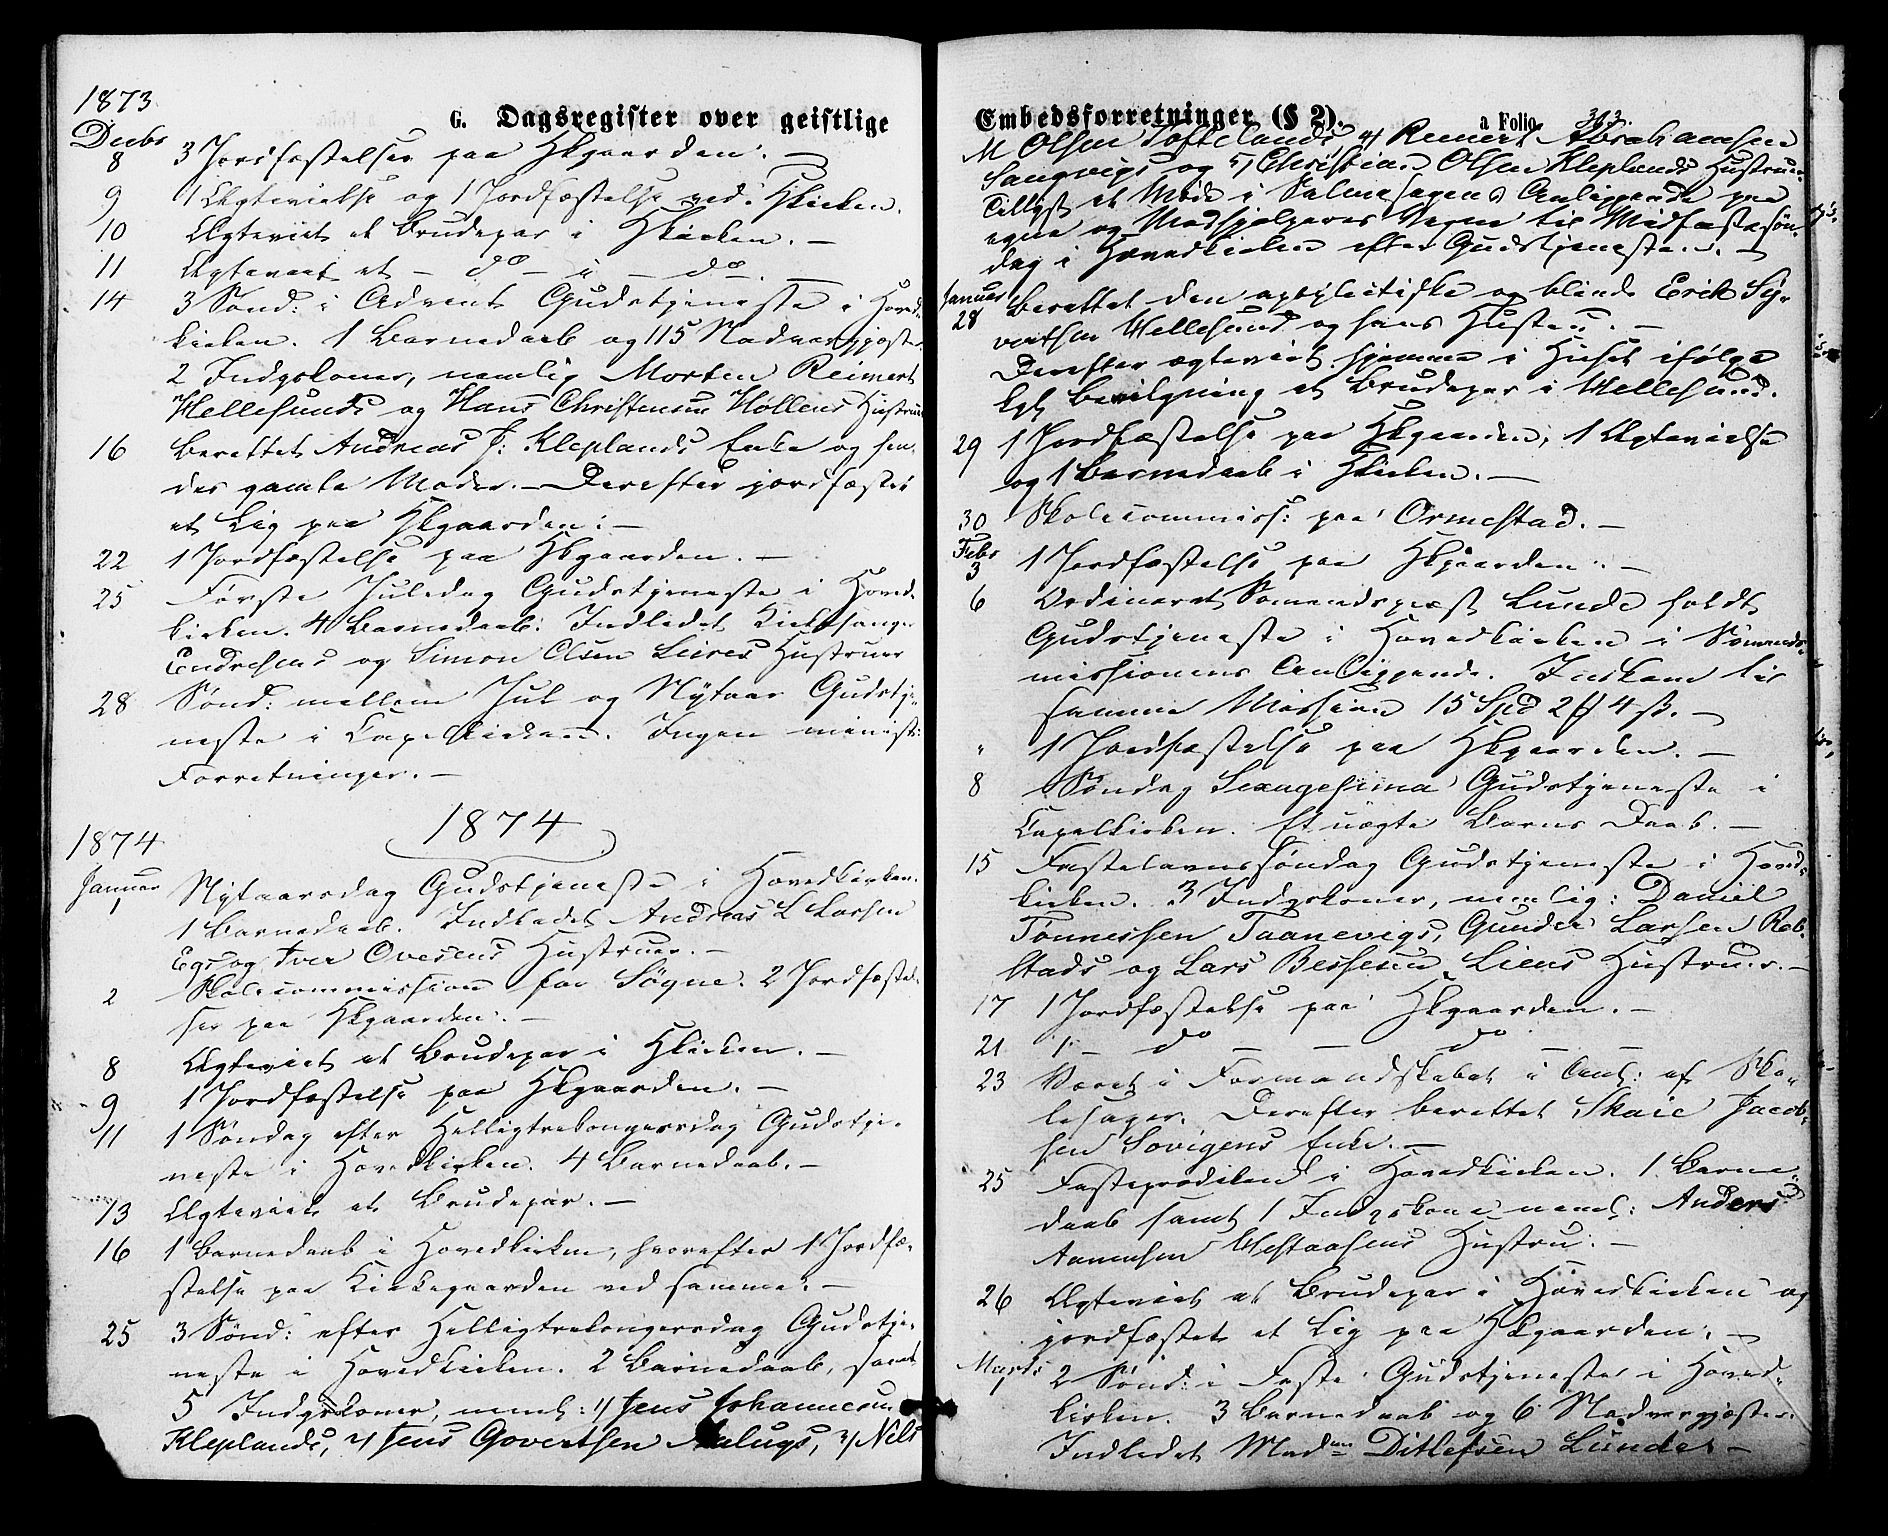 1873
G. Dagsregister over geistlige
Decbr
8 3 Jordfæstelser paa Hkgaarden. —
9 1 Ægtevielse og 1 Jordfæstelse ved Hkirken.
10 Ægteviet et Brudepar i Hkirken. —
11 Ægteviet et — do — i — do. —
14 3 Sønd: i Advent Gudstjeneste i Hoved-
kirken. 1 Barnedaab og 115 Nadvergjæster.
2 Indgskoner, nemlig Morten Reimert
Hellesunds og Hans Christensen Høllens Hustruer
16 Berettet Andreas J: Kleplands Enke og hen-
des gamle Moder. — Derefter jordfæstet
et Lig paa Hkgaarden: —
22 1 Jordfæstelse paa Hkgaarden. —
25 Første Juledag Gudstjeneste i Hoved-
kirken. 4 Barnedaab. Indledet Kirkesanger
Endresens og Simon Olsen Leires Hustruer
28 Sønd: mellem Jul og Nytaar Gudstje-
neste i Capelkirken. Ingen minist:
Forretninger. —
1874
1874
Januar
1 Nytaarsdag Gudstjeneste i Hovedkirken.
1 Barnedaab. Indledet Andreas L Larsen
Egs og Iver Ovesens Hustruer. —
2 Skolecommission for Søgne. 2 Jordfæstel-
ser paa Hkgaarden. —
8 Ægteviet et Brudepar i Hkirken. —
9 1 Jordfæstelse paa Hkgaarden. —
11 1 Søndag efter Helligtrekongersdag Gudstje-
neste i Hovedkirken. 4 Barnedaab. —
13 Ægteviet et Brudepar. —
16 1 Barnedaab i Hovedkirken, hvorefter 1 Jordfæ-
stelse paa Kirkegaarden ved samme. —
25 3 Sønd: efter Helligtrekongersdag Gudstje-
neste i Hovedkirken. 2 Barnedaab, samt
5 Indgskoner, neml: 1/ Jens Johannesen
Kleplands, 2/ Jens Govertsen Aalugs, 3/ Nils
Embedsforretninger (§ 2).
a Folio 363.
M Olsen Toftelands 4/ Reinert Abrahamsen
Sangvigs og 5/ Christian Olsen Kleplands Hustruer.
Tillyst et Møde i Salmesagens Anliggende paa
egne og Medhjælperes Vegne til Midfastesøn-
dag i Hovedkirken efter Gudstjenesten. —
Januar
28 Berettet den apoplectiske og blinde Erik Sy-
vertsen Hellesund og hans Hustru. —
Derefter ægteviet hjemme i Huset ifølge
kgl Bevilgning et Brudepar i Hellesund.
29 1 Jordfæstelse paa Hkgaarden, 1 Ægtevielse
og 1 Barnedaab i Hkirken. —
30 Skolecommiss: paa Ormestad. —
Febr
3 1 Jordfæstelse paa Hkgaarden. —
6 Ordineret Sømandspræst Lunde holdt
Gudstjeneste i Hovedkirken i Sømands-
missionens Anliggende. Indkom til
samme Mission 15 Spd 2 ₰ 4 ß. —
" 1 Jordfæstelse paa Hkgaarden. —
8 Søndag Sexagesima Gudstjeneste i
Capelkirken. Et uægte Barns Daab. —
15 Fastelavnssøndag Gudstjeneste i Hoved-
kirken. 3 Indgskoner, nemlig: Daniel
Tønnessen Taanevigs, Gunder Larsen Reb-
stads og Lars Bessesen Liens Hustruer. —
17 1 Jordfæstelse paa Hkgaarden. —
21 1 — do — — do — —
23 Været i Formandskabet i Anl: af Sko-
lesager. Derefter berettet Skaie Jacob-
sen Sovigens Enke. —
25 Fasteprædiken i Hovedkirken. 1 Barne-
daab samt 1 Indgskone neml: Anders
Aanensen Vestaasens Hustru. —
26 Ægteviet et Brudepar i Hovedkirken og
jordfæstet et Lig paa Hkgaarden. —
Marts
1 2 Sønd: i Faste Gudstjeneste i Hoved-
kirken. 3 Barnedaab og 6 Nadvergjæster.
Indledet Madm Ditlefsen Lunde. —